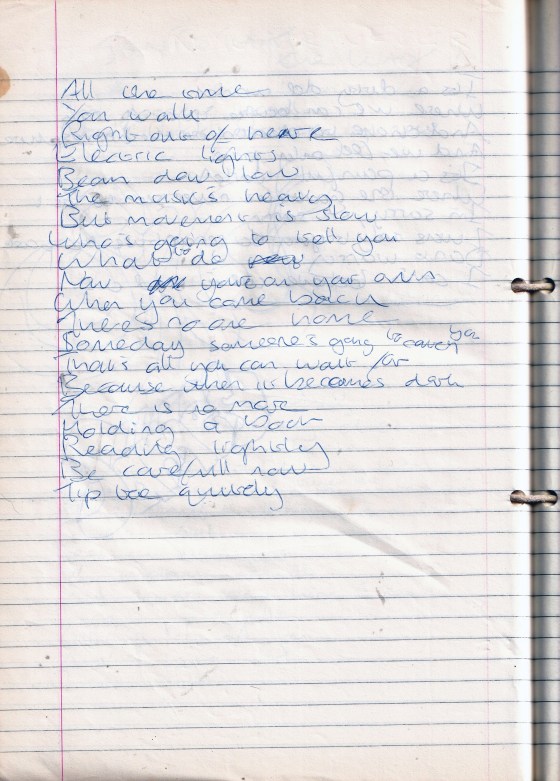 All the time
You walk
Right out of here
Electric lights
Beam down low
The music's heavy
But movement is slow
Who's going to tell you
What to do
Now you're on your own
When you come back
There's no one home
Someday someone's going to catch you
That's all you can wait for
Because when it becomes dark
There is no more
Holding a book
Reading lightly
Be carefull now
Tip toe quietly